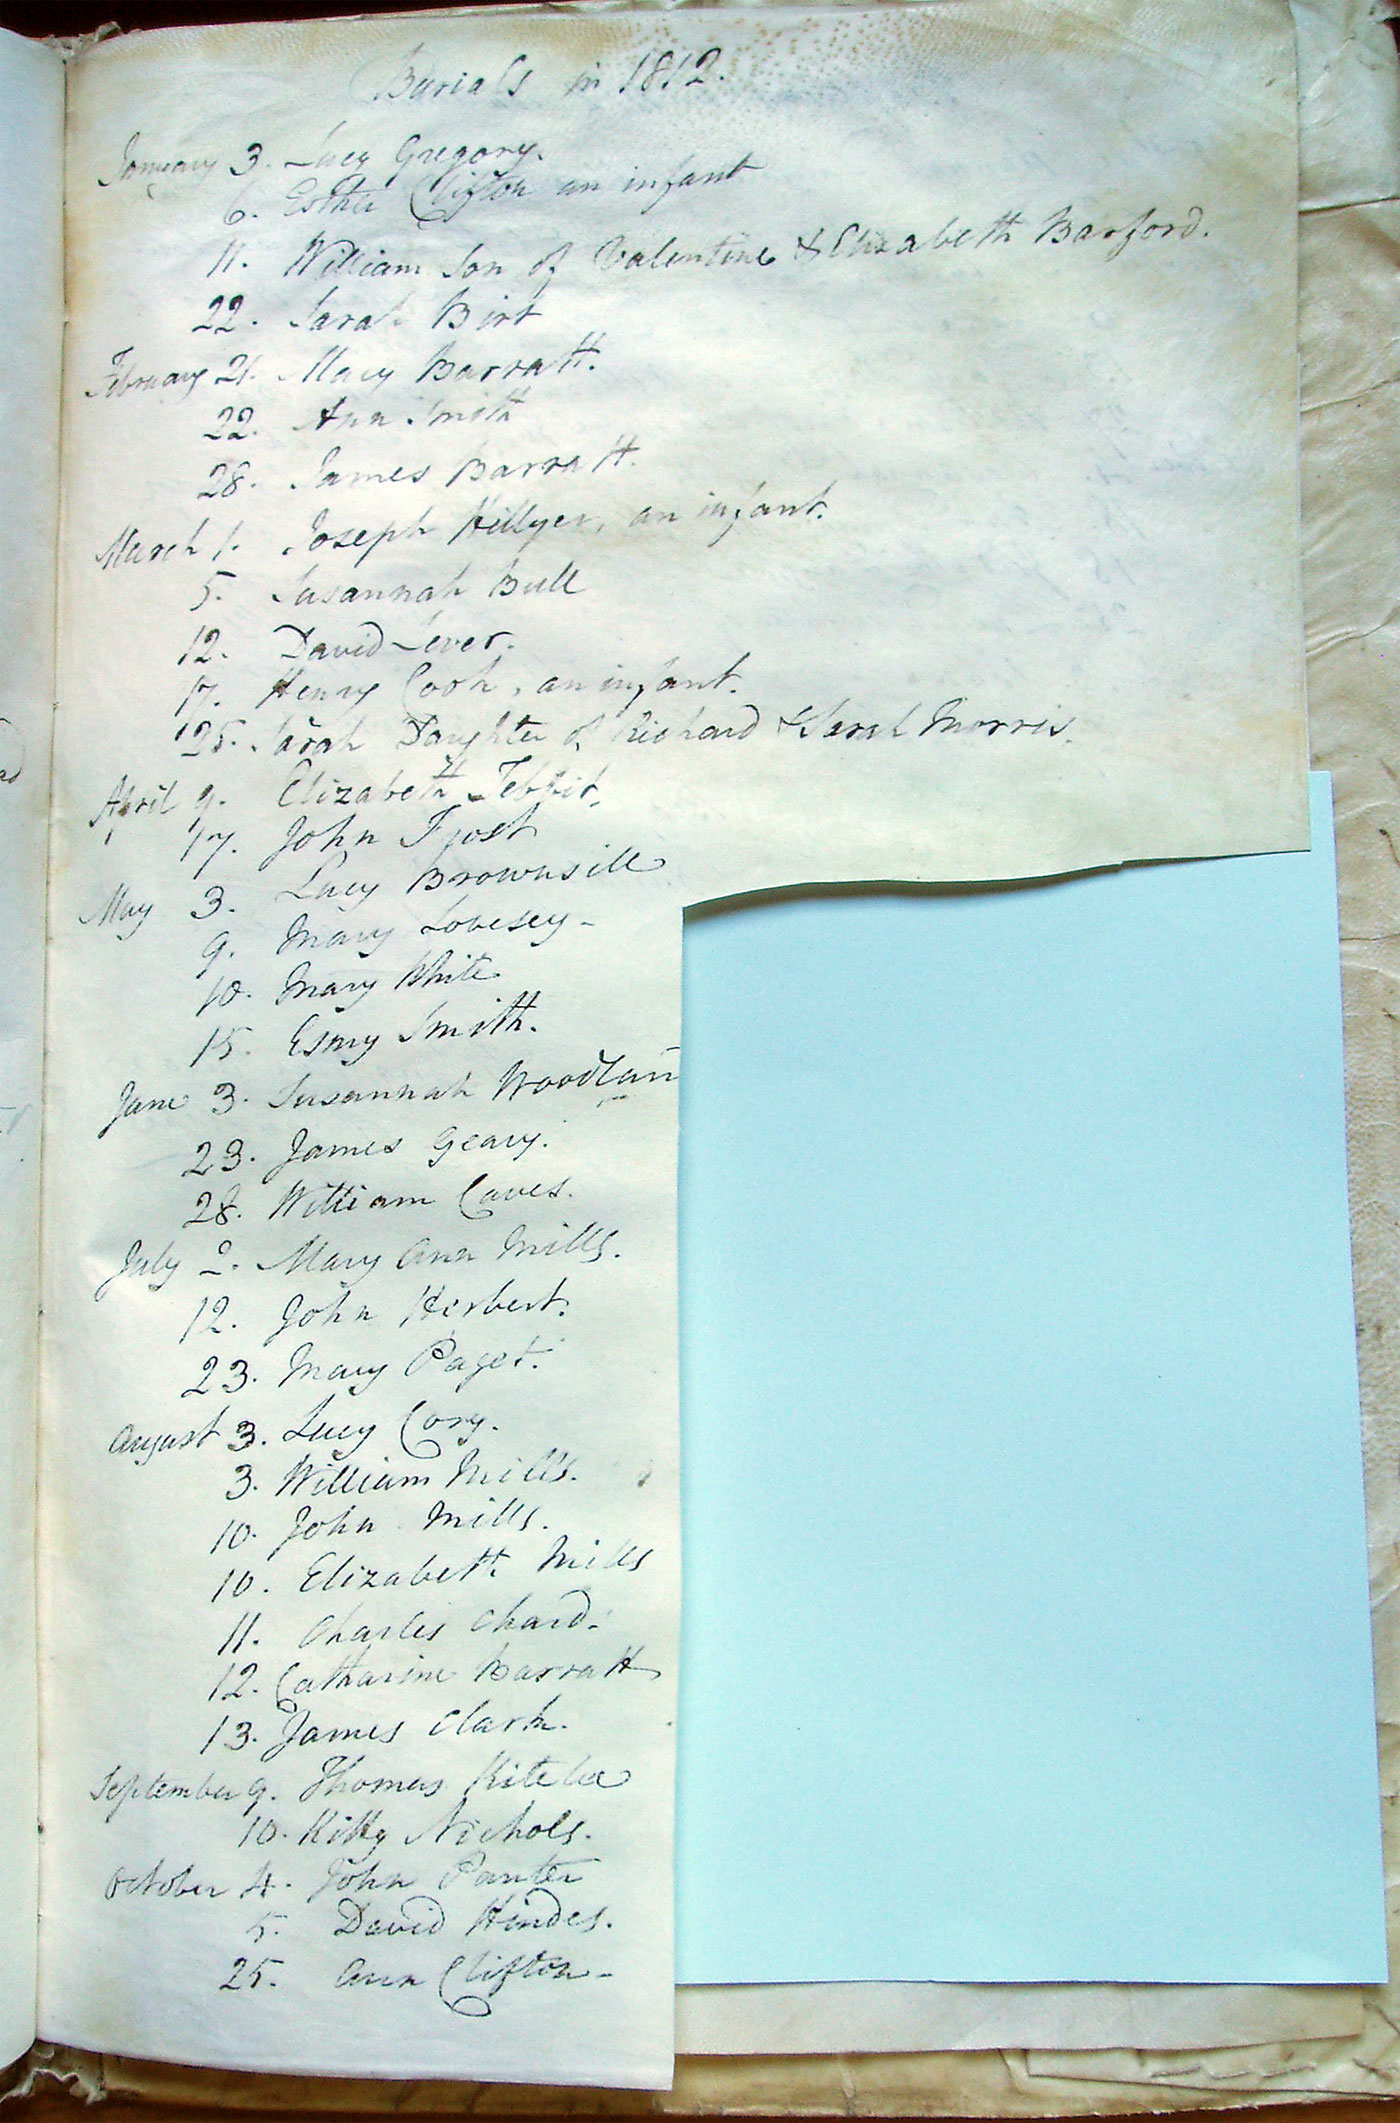 Burials in 1812.
January 3. Lucy Gregory.
6. Esther Clifton an infant
11. William Son of Valentine & Elizabeth Barford.
22. Sarah Birt
February 21. Mary Barratt.
22. Ann Smith
28. James Barratt.
March 1. Joseph Hillyer, an infant.
5. Susannah Bull
12. David Lever.
17. Henry Cook, an infant.
25. Sarah Daughter of Richard & Sarah Morris.
April 9. Elizabeth Tebbit.
17. John Frost
May 3. Lucy Brownsill
9. Mary Lovesey-
10. Mary White
15. Esmy Smith.
June 3. Susannah
23. James Geary.
28. William Caves.
July 2. Mary Ann Mills.
12. John Herbert.
23. Mary Paget.
August 3. Lucy Cory.
3. William Mills.
10. John Mills.
10. Elizabeth Mills
11. Charles Chard.
12. Catharine Barratt
13. James Clark.
September 9. Thomas Kitelee
10. Kitty Nichols.
October 4. John Panter
5. David Hindes.
25. Ann Clifton-